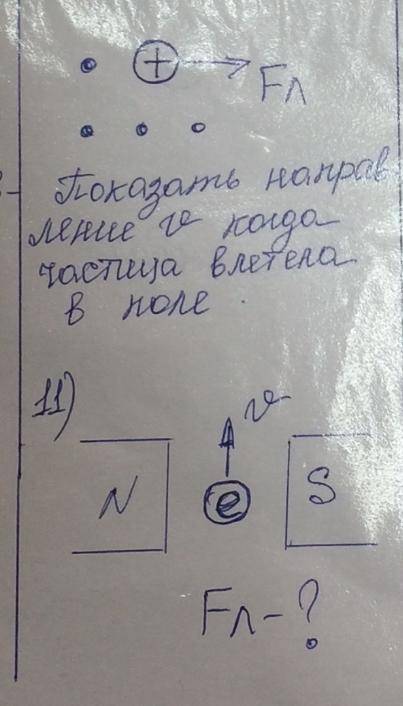 + Fл
Показать направ
ление v когда
частица влетела
в поле.
11)
v
N e S
Fл-?